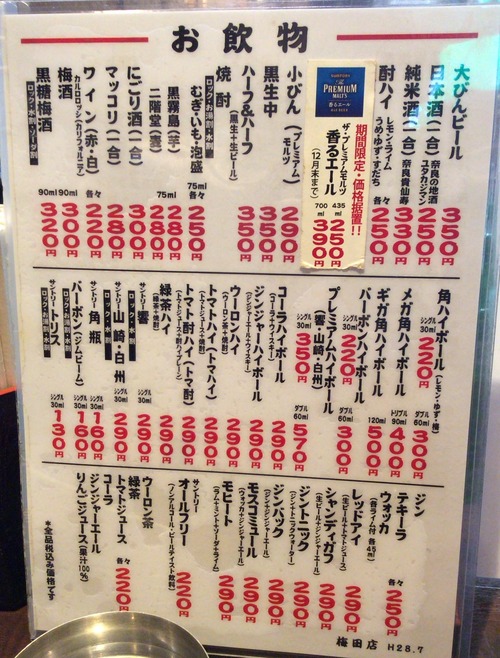 お飲物
大びんビール 350円
日本酒(一合) 奈良の地酒 ユタカジマン 250円
純米酒(一合) 奈良貴仙寿 330円
酎ハイ レモン・ライム うめ・ゆず・すだち 各々250円
期間限定・価格据置!!
SUNTORY
The PREMIUM MALT'S
香るエール
ザ・プレミアムモルツ
香るエール
(12月末まで)
435ml 250円
700ml 390円
小びん(プレミアムモルツ) 290円
黒生中 350円
ハーフ&ハーフ(黒生+生ビール) 350円
焼酎 ロック・お湯割・水割
むぎ・いも・泡盛 75ml 各々250円
黒霧島(芋) 280円
二階堂(麦) 75ml 280円
にごり酒(一合) 350円
マッコリ(一合) 280円
ワイン(赤・白) カルロロッシ(カリフォルニア) 各々200円
梅酒 90ml 300円
黒糖梅酒 ロック・水割・ソーダ割 90ml 320円
角ハイボール(レモン・ゆず・梅) シングル30ml 220円 ダブル60ml 300円
メガ角ハイボール トリプル90ml 400円
ギガ角ハイボール 120ml 500円
バーボンハイボール シングル30ml 220円 ダブル60ml 300円
プレミアムハイボール(響・山崎・白州) シングル30ml 350円 ダブル60ml 570円
コーラハイボール(コーラ+ウイスキー) 290円
ジンジャーハイボール(ジンジャーエール+ウイスキー) 290円
ウーロンハイ(ウーロン茶+焼酎) 290円
トマトハイ(トマハイ)(トマトジュース+焼酎) 290円
トマト酎ハイ(トマ酎)(トマトジュース+酎ハイプレーン) 290円
緑茶ハイ(緑茶+焼酎) 290円
サントリー 響 ロック・水割 シングル30ml 290円
サントリー 山崎・白州 ロック・水割 シングル30ml 290円
サントリー 角瓶 シングル30ml 160円
バーボン(ジムビーム) ロック・お湯割・水割 シングル30ml 160円
サントリー トリス ロック・お湯割・水割 シングル30ml 130円
ジン
テキーラ
ウォッカ(各ライム付 各45ml) 各々250円
レッドアイ(生ビール+トマトジュース) 290円
シャンディガフ(生ビール+ジンジャーエール) 290円
ジントニック(ジン+トニックウォーター) 290円
ジンバック(ジン+ジンジャーエール) 290円
モスコミュール(ウォッカ+ジンジャーエール) 290円
モヒート(ラム+ミント+ソーダ+ライム) 290円
サントリー オールフリー(ノンアルコール・ビールテイスト飲料) 220円
ウーロン茶
緑茶
トマトジュース
コーラ
ジンジャーエール
りんごジュース(果汁100%) 各々220円
*全品税込み価格です
梅田店 H28.7